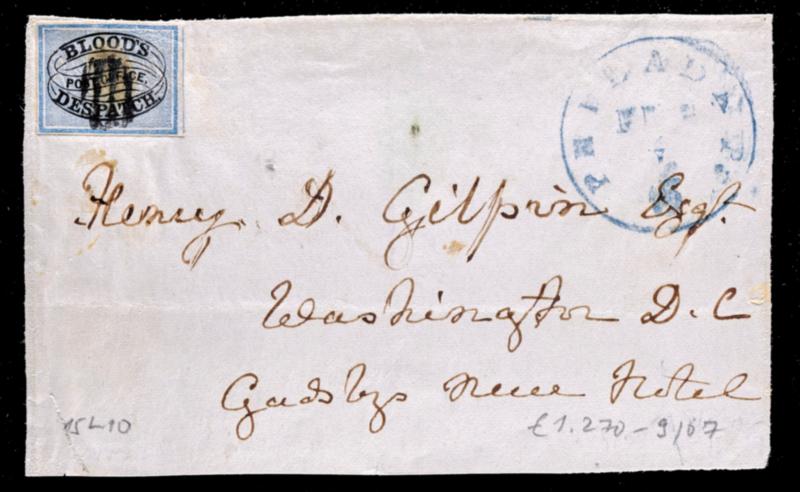 BLOOD'S
POST OFFICE.
DESPATCH.
PHILADA Pa.
Henry D. Gilpin Esqr.
Washington D.C
Gadsbys new Hotel
15L10
€1.270-9/07